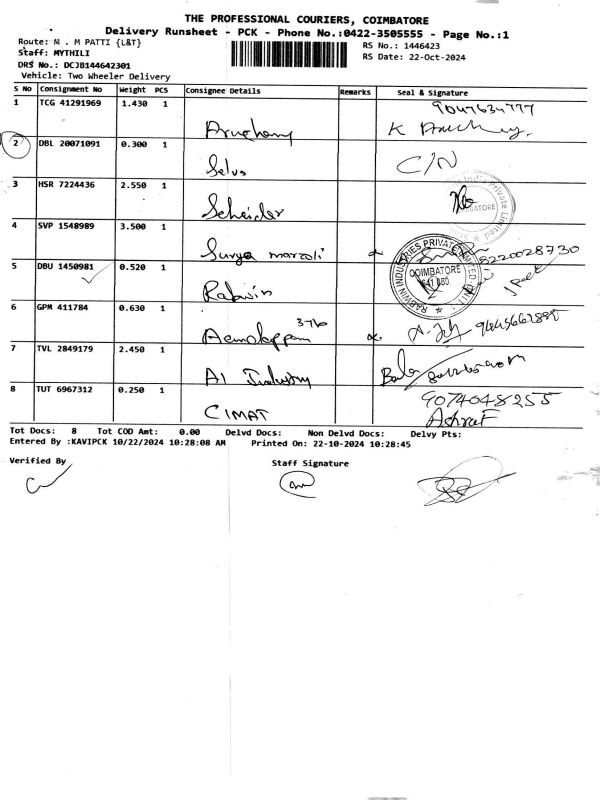 THE PROFESSIONAL COURIERS, COIMBATORE
Delivery Runsheet - PCK - Phone No.:0422-3505555 - Page No.:1
Route: M . M PATTI {L&T}
RS No.: 1446423
Staff: MYTHILI
RS Date: 22-Oct-2024
DRS No.: DCJB144642301
Vehicle: Two Wheeler Delivery
S No Consignment No Weight PCS Consignee Details Remarks Seal & Signature
1 TCG 41291969 1.430 1
K
2 DBL 20071091 0.300 1 Selva C/N
3 HSR 7224436 2.550 1
COIMBATORE
4 SVP 1548989 3.500 1 Surya
8220028730
5 DBU 1450981 0.520 1 Rabwin
RABWIN INDUSTRIES PRIVATE LIMITED
COIMBATORE
6 GPM 411784 0.630 1
7 TVL 2849179 2.450 1 AI Industry Bala
8 TUT 6967312 0.250 1 CIMAT 9074048255
Ashref
Tot Docs: 8 Tot COD Amt: 0.00 Delvd Docs: Non Delvd Docs: Delvy Pts:
Entered By :KAVIPCK 10/22/2024 10:28:08 AM Printed On: 22-10-2024 10:28:45
Verified By Staff Signature